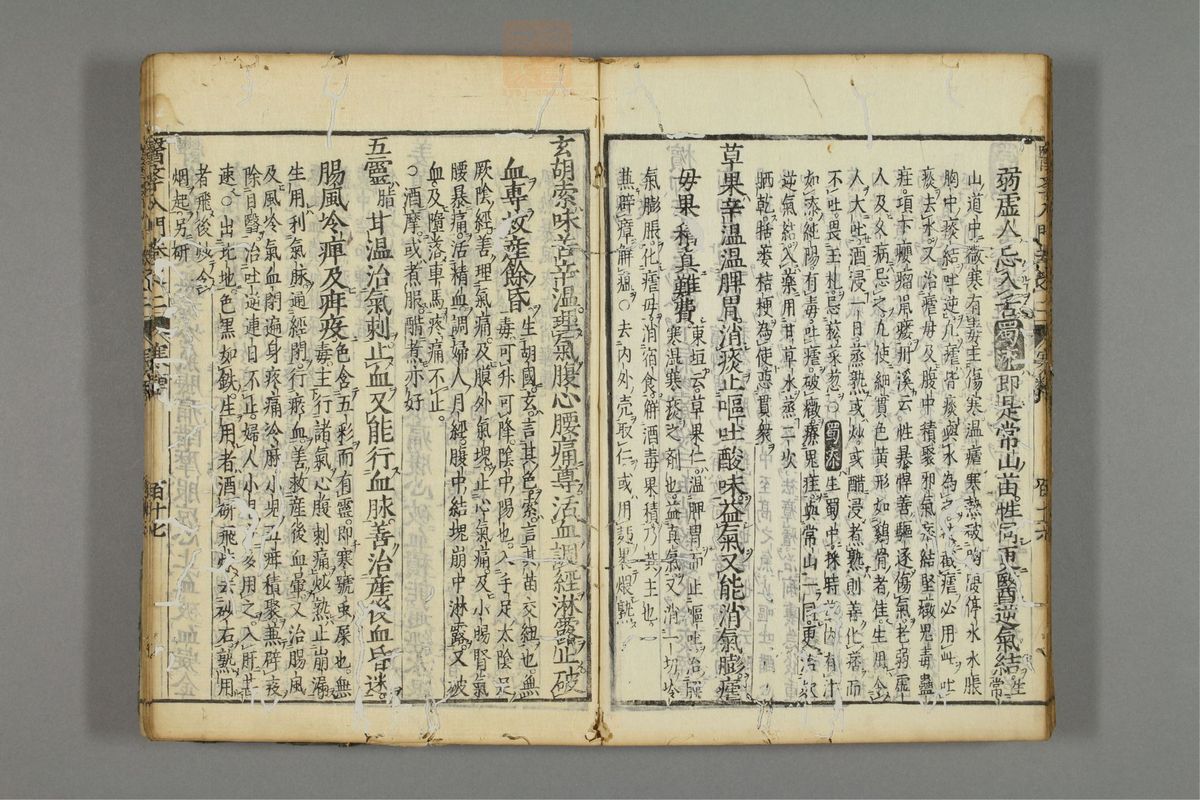 弱虛人忌入舌蜀漆即是常山苗性同更醫逆氣結常
山道中微寒有毒主傷寒溫瘧寒熱破胸腹停水水脹
胸中痰結吐逆凡瘧皆痰與水為之
痰去水又治瘧母及腹中積聚邪氣痞結堅癥鬼毒蠱
疰項下癭瘤丹溪云性暴悍善驅逐傷氣老弱虛
人及久病忌之凡使細實色黃形如雞骨者佳生用令
人大吐酒浸一日蒸熟或炒或醋浸煮熟則善化痞而
不吐畏玉札忌菘菜葱○蜀漆生蜀中採時内有汁
如漆純陽有毒吐瘧破癥療鬼疰與常山一同更治欬
逆氣結入藥用甘草水蒸二次
晒乾栝蔞桔梗為使惡貫衆
草果辛溫溫脾胃消痰止嘔吐酸味益氣又能消氣膨瘧
毋果積真難費東垣云草果仁溫脾胃而止嘔吐治脾
寒濕寒痰之劑也益真氣又消一切冷
氣膨脹化瘧母消宿食解酒毒果積乃其主也
兼辟瘴解瘟○去内外壳取仁或用麪果煨熟
玄胡索味苦辛溫理氣腹心腰痛尊活血調經淋露止破
血專救產餘昏生胡國玄言其色索言其苗交紐也無
毒可升可降陰中陽也入手足太陰足
厥陰經善理氣痛及膜外氣塊止心氣痛及小腸腎氣
腰暴痛活精血調婦人月經腹中結塊崩中淋露又破
血及墮落車馬疼痛不止
○酒摩或煮服醋煮亦好
五靈脂甘溫治氣刺止血又能行血脉善治產後血昏迷
腸風冷痺及疳疫色含五彩而有靈即寒號虫屎也無
毒主行諸氣心腹刺痛炒熟止崩漏
生用利氣脉通經閉行瘀血善救產後血暈又治腸風
及風冷氣血閉遍身疼痛冷麻小兒疳積聚兼辟疫
除目醫治吐逆連日不止婦人小兒方多用之入肝
速○出北地色黑如鉄生用者酒研飛煉去砂石熟用
者飛後炒令
烟起另研
醫學入門卷
百十七